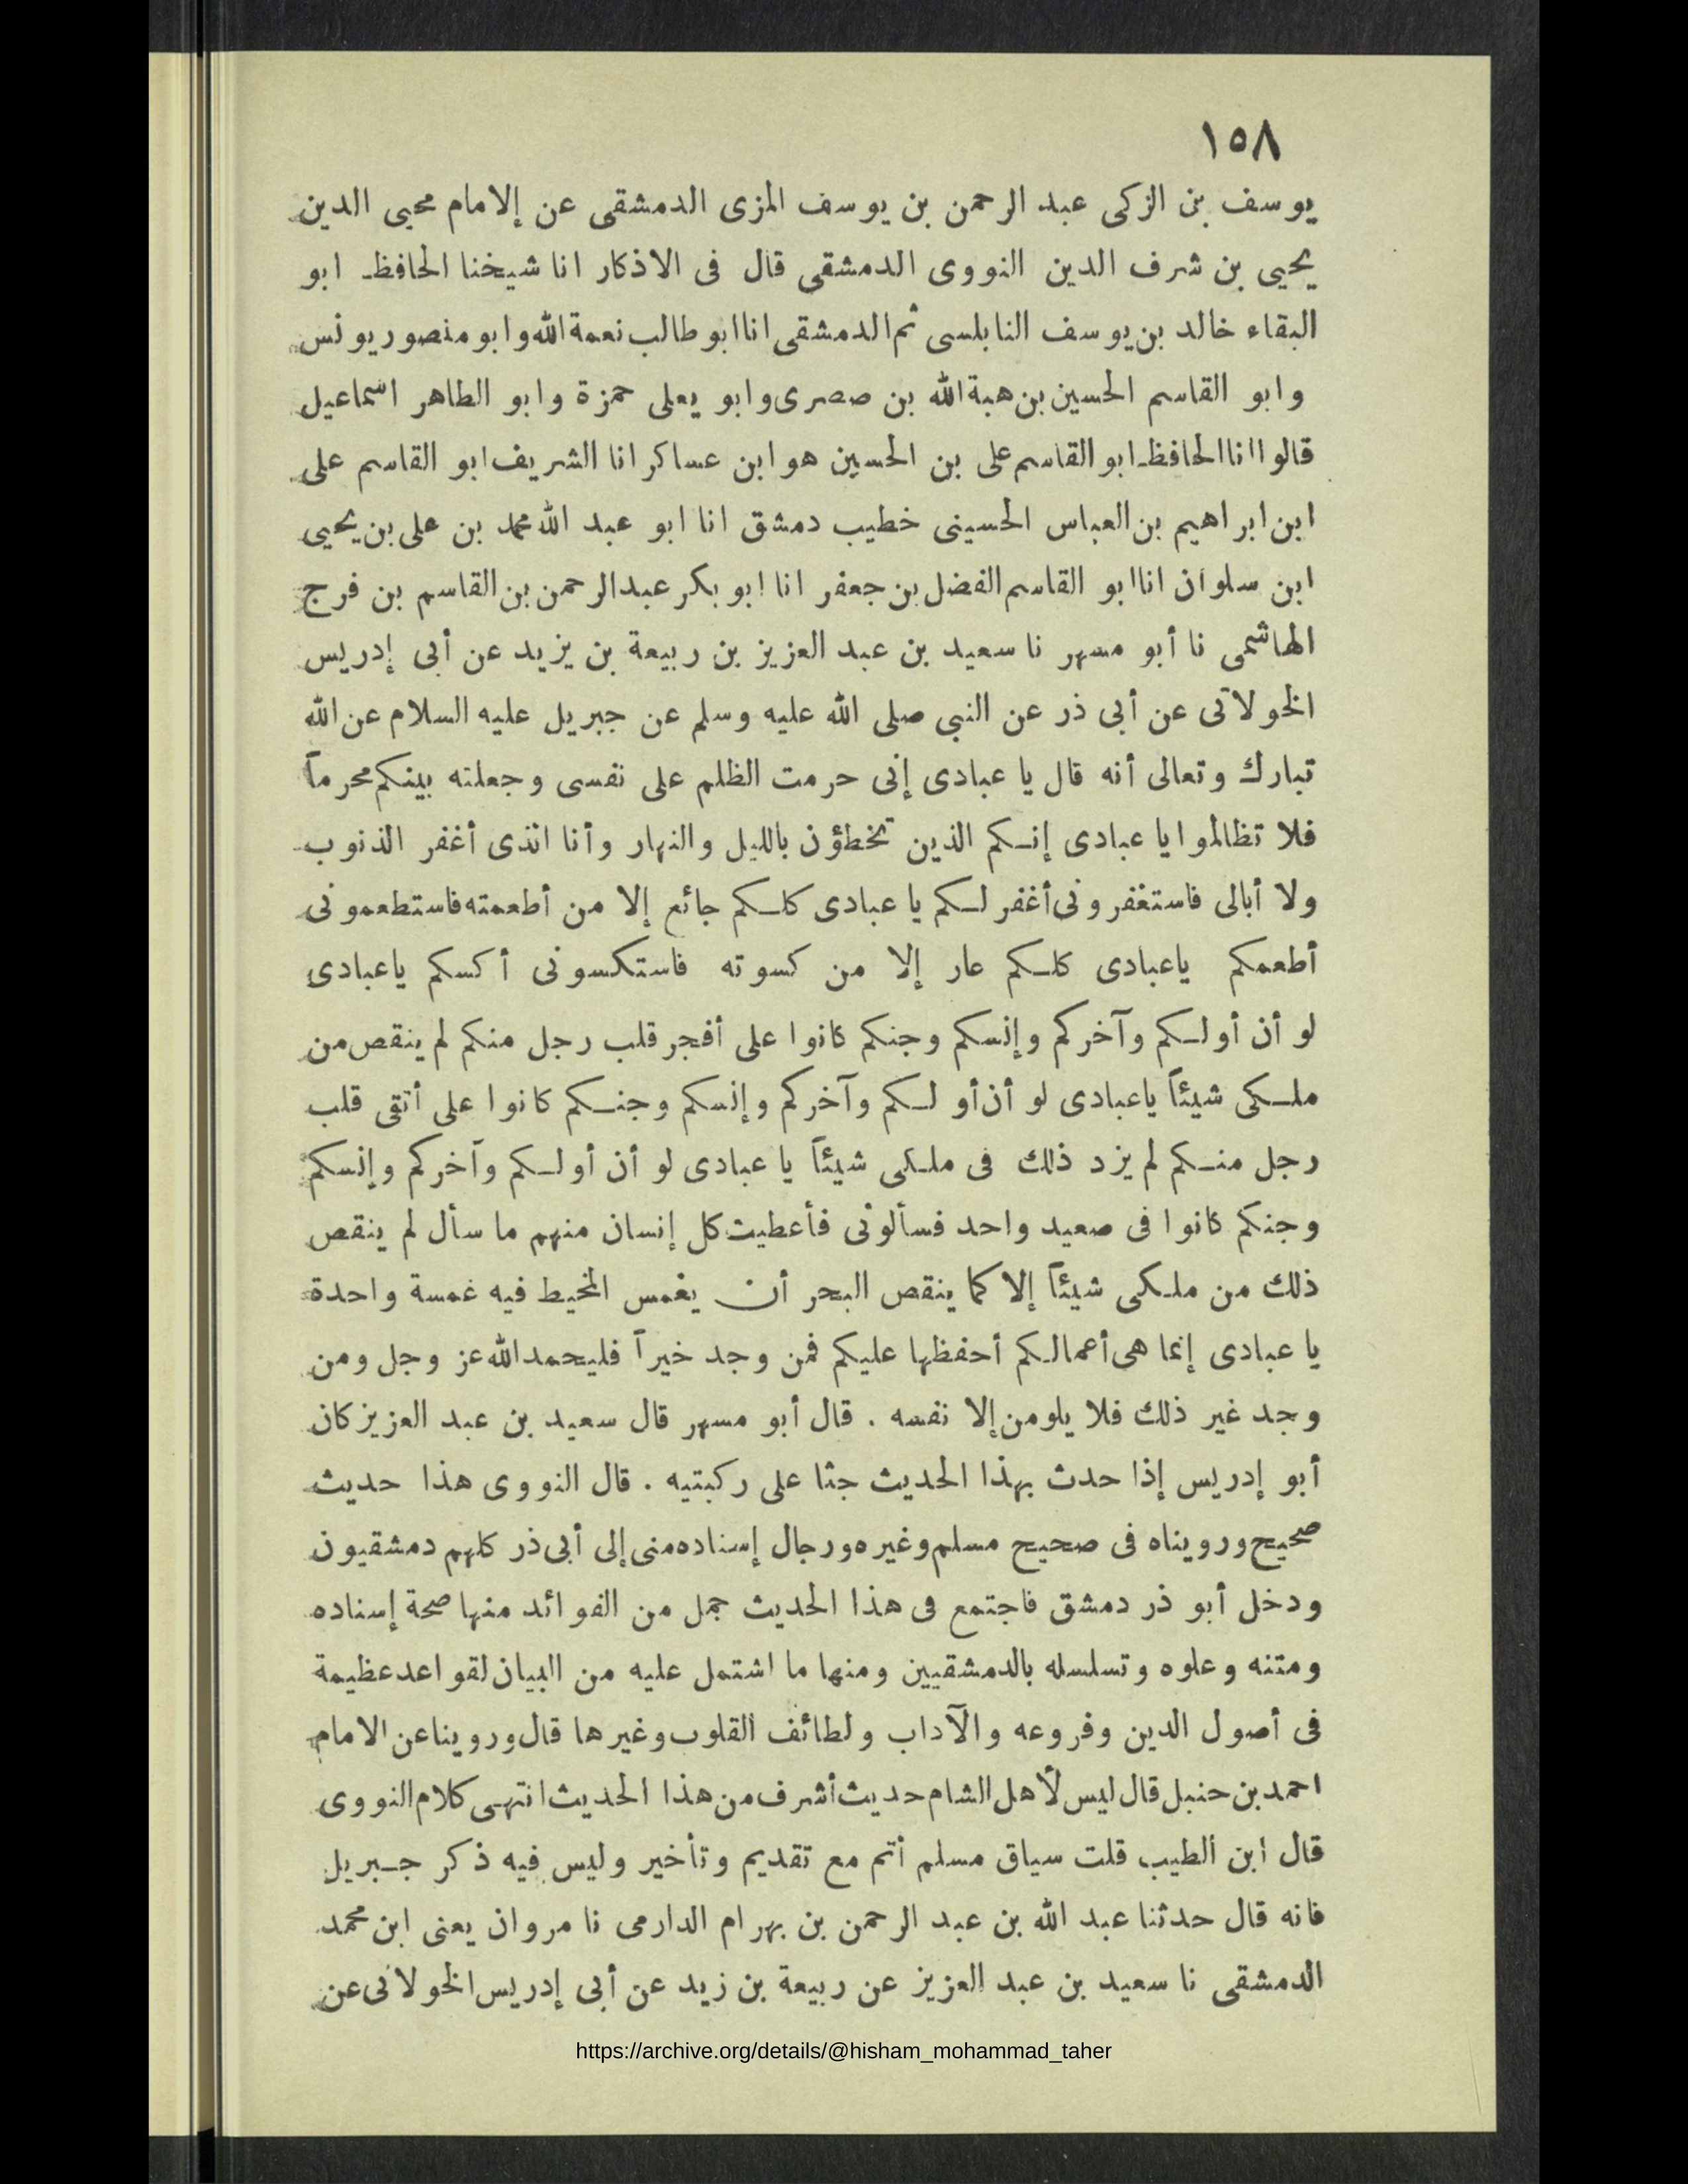 ١٥٨
يوسف بن الزكى عبد الرحمن بن يوسف المزى الدمشقى عن إلامام محيى الدين
يحيى بن شرف الدين النووى الدمشقى قال فى الاذكار انا شيخنا الحافظ ابو
البقاء خالد بن يوسف النابلسى ثم الدمشقى انا ابو طالب نعمة الله وابو منصور يونس
وابو القاسم الحسين بن هبة الله بن صصرى وابو يعلى حمزة وابو الطاهر اسماعيل
قالوا انا الحافظ ابو القاسم على بن الحسين هو ابن عساكر انا الشريف ابو القاسم على
ابن ابراهيم بن العباس الحسينى خطيب دمشق انا ابو عبد الله محمد بن على بن يحيى
ابن سلوان انا ابو القاسم الفضل بن جعفر انا ابو بكر عبد الرحمن بن القاسم بن فرج
الهاشمى نا أبو مسهر نا سعيد بن عبد العزيز بن ربيعة بن يزيد عن أبى إدريس
الخولاتى عن أبى ذر عن النبى صلى الله عليه وسلم عن جبريل عليه السلام عن الله
تبارك وتعالى أنه قال يا عبادى إنى حرمت الظلم على نفسى وجعلته بينكم محرماً
فلا تظالموا يا عبادى إنكم الذين تخطؤن بالليل والنهار وأنا الذى أغفر الذنوب
ولا أبالى فاستغفرونى أغفر لكم يا عبادى كلكم جائع إلا من أطعمته فاستطعمونى
أطعمكم ياعبادى كلكم عار إلا من كسوته فاستكسونى أكسكم ياعبادى
لو أن أولكم وآخركم وإنسكم وجنكم كانوا على أفجر قلب رجل منكم لم ينقص من
ملكى شيئاً ياعبادى لو أن أولكم وآخركم وإنسكم وجنكم كانوا على أتقى قلب
رجل منكم لم يزد ذلك فى ملكى شيئاً يا عبادى لو أن أولكم وآخركم وإنسكم
وجنكم كانوا فى صعيد واحد فسألونى فأعطيت كل إنسان منهم ما سأل لم ينقص
ذلك من ملكى شيئاً إلا كما ينقص البحر أن يغمس المخيط فيه غمسة واحدة
يا عبادى إنما هى أعمالكم أحفظها عليكم فمن وجد خيراً فليحمد الله عز وجل ومن
وجد غير ذلك فلا يلومن إلا نفسه . قال أبو مسهر قال سعيد بن عبد العزيز كان
أبو إدريس إذا حدث بهذا الحديث جثا على ركبتيه . قال النووى هذا حديث
صحيح ورويناه فى صحيح مسلم وغيره ورجال إسناده منى إلى أبى ذر كلهم دمشقيون
ودخل أبو ذر دمشق فاجتمع فى هذا الحديث جمل من الفوائد منها صحة إسناده
ومتنه وعلوه وتسلسله بالدمشقيين ومنها ما اشتمل عليه من البيان لقواعد عظيمة
فى أصول الدين وفروعه والآداب ولطائف القلوب وغيرها قال وروينا عن الامام
احمد بن حنبل قال ليس لأهل الشام حديث أشرف من هذا الحديث انتهى كلام النووى
قال ابن الطيب قلت سياق مسلم أتم مع تقديم وتأخير وليس فيه ذكر جبريل
فانه قال حدثنا عبد الله بن عبد الرحمن بن بهرام الدارمى نا مروان يعنى ابن محمد
الدمشقى نا سعيد بن عبد العزيز عن ربيعة بن زيد عن أبى إدريس الخولانى عن
https://archive.org/details/@hisham_mohammad_taher